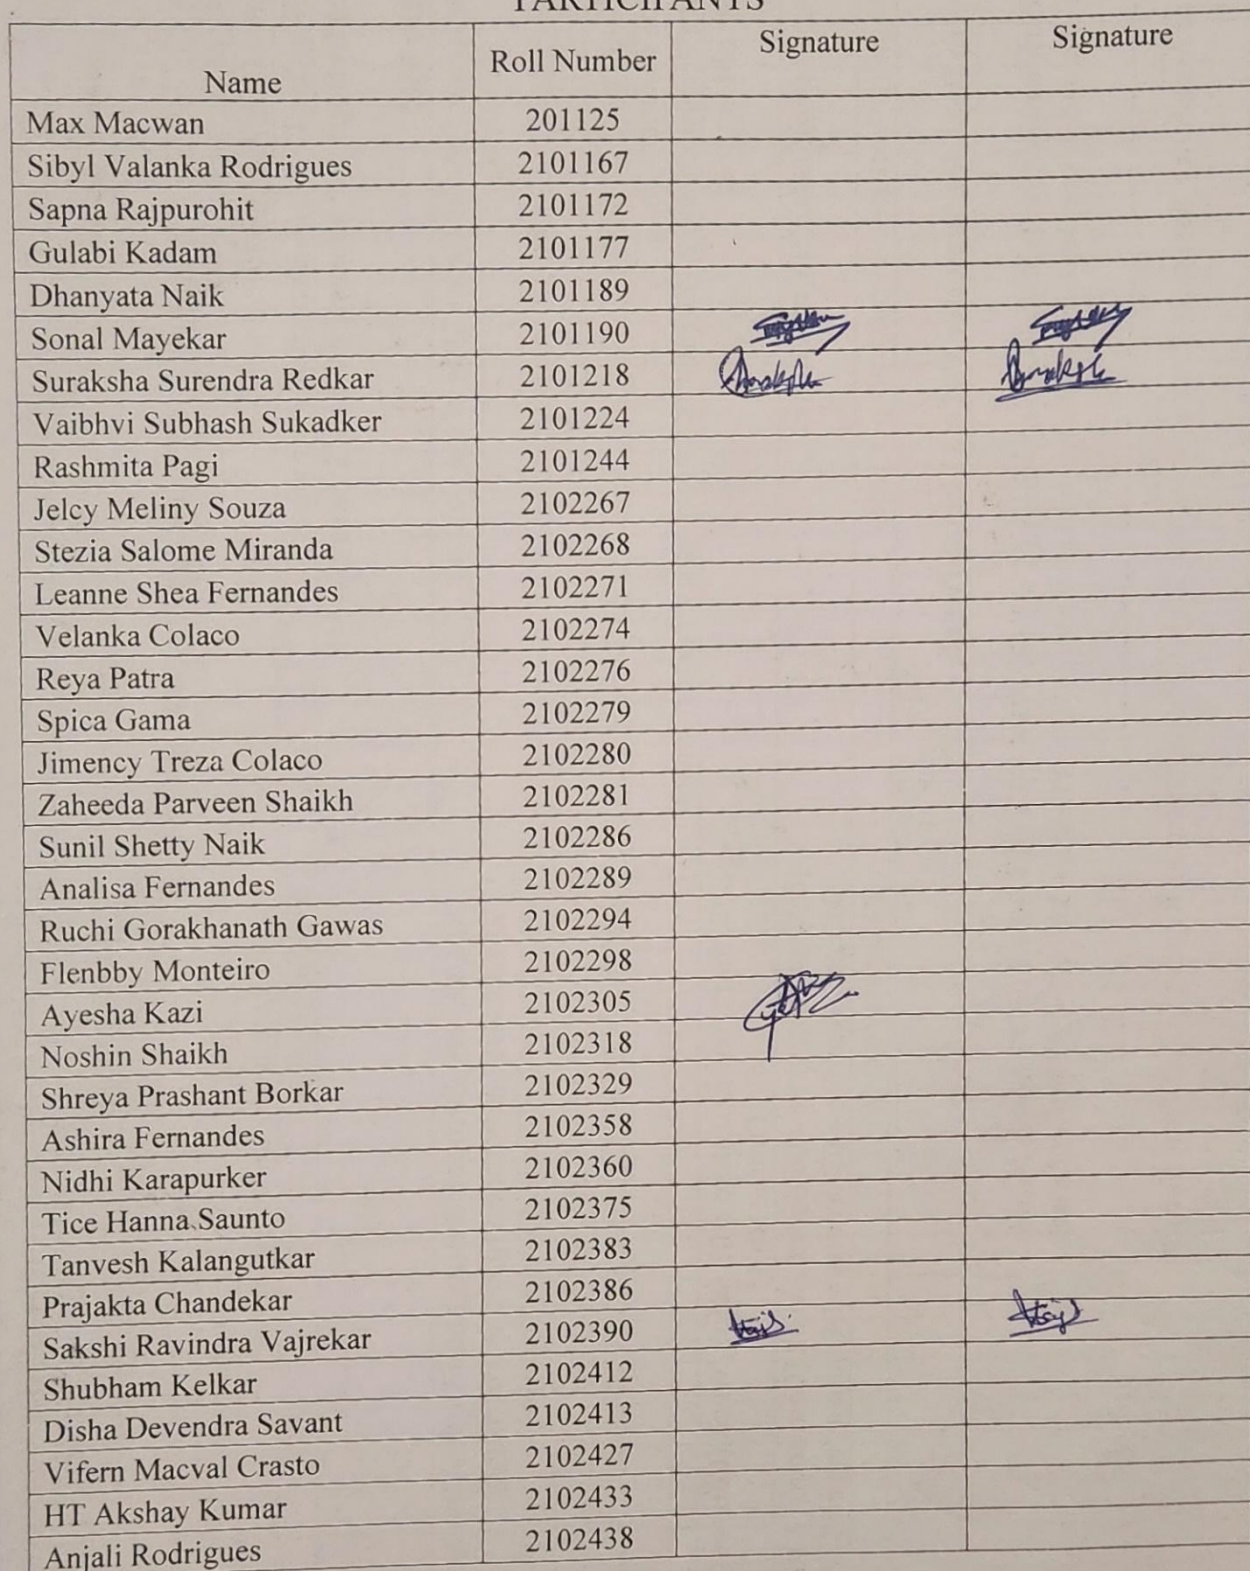 PARTICIPANTS
Name Roll Number Signature Signature
Max Macwan 201125
Sibyl Valanka Rodrigues 2101167
Sapna Rajpurohit 2101172
Gulabi Kadam 2101177
Dhanyata Naik 2101189
Sonal Mayekar 2101190
Suraksha Surendra Redkar 2101218
Vaibhvi Subhash Sukadker 2101224
Rashmita Pagi 2101244
Jelcy Meliny Souza 2102267
Stezia Salome Miranda 2102268
Leanne Shea Fernandes 2102271
Velanka Colaco 2102274
Reya Patra 2102276
Spica Gama 2102279
Jimency Treza Colaco 2102280
Zaheeda Parveen Shaikh 2102281
Sunil Shetty Naik 2102286
Analisa Fernandes 2102289
Ruchi Gorakhanath Gawas 2102294
Flenbby Monteiro 2102298
Ayesha Kazi 2102305
Noshin Shaikh 2102318
Shreya Prashant Borkar 2102329
Ashira Fernandes 2102358
Nidhi Karapurker 2102360
Tice Hanna Saunto 2102375
Tanvesh Kalangutkar 2102383
Prajakta Chandekar 2102386
Sakshi Ravindra Vajrekar 2102390
Shubham Kelkar 2102412
Disha Devendra Savant 2102413
Vifern Macval Crasto 2102427
HT Akshay Kumar 2102433
Anjali Rodrigues 2102438